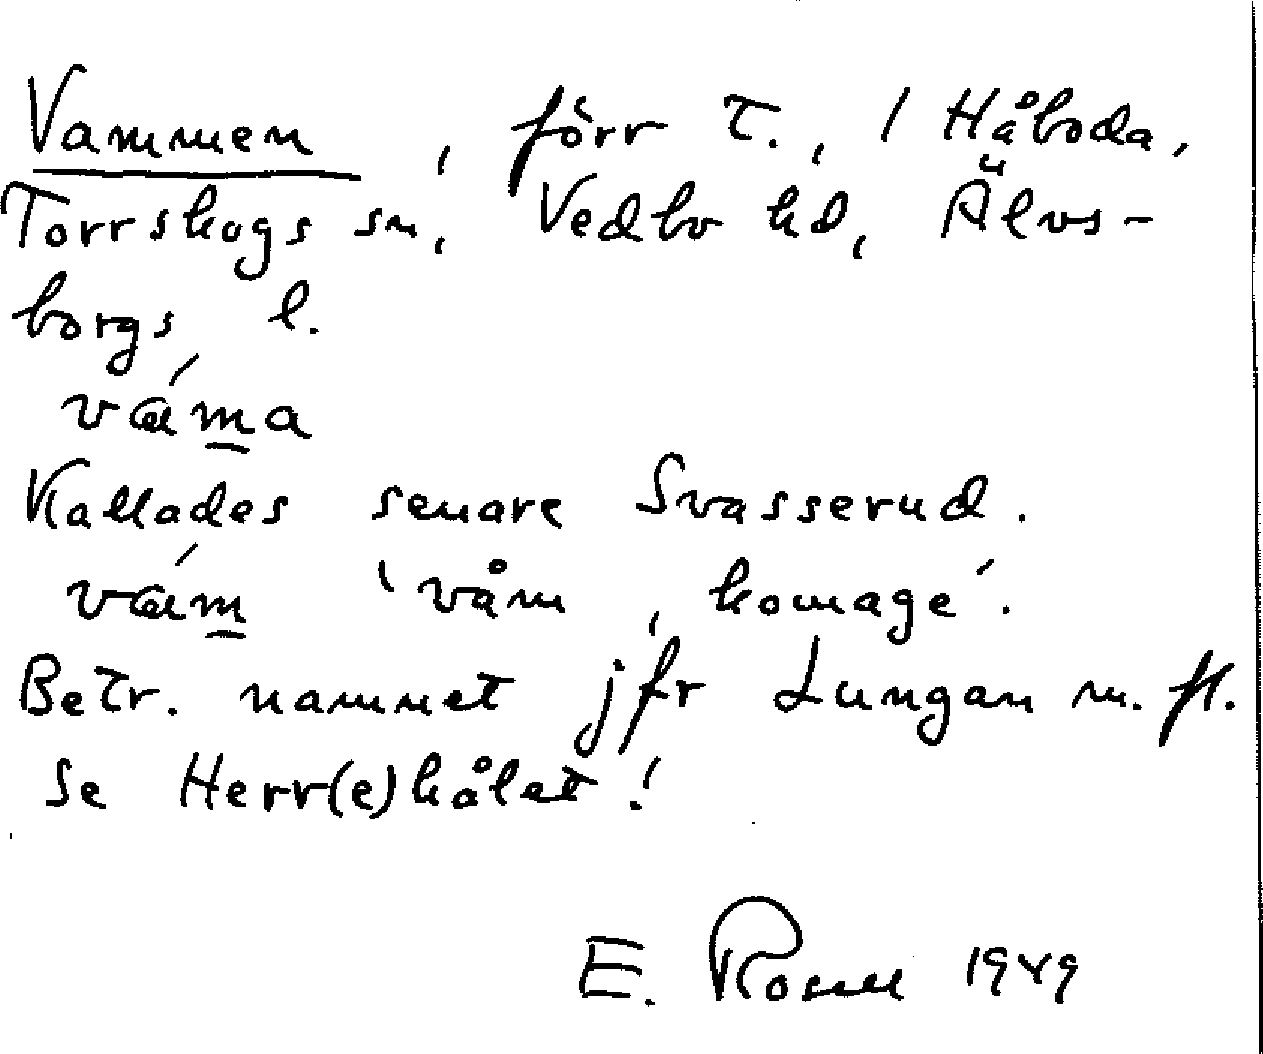 Vammen, förr T., / Håboda,
Torrskogs sn, Vedbo hd, Älvs-
borgs l.
váma
Kallades senare Svasserud.
vám 'våm, komage'.
Betr. namnet jfr Lungan m. fl.
se Herr(e)kålet!
E. Rosell 1949